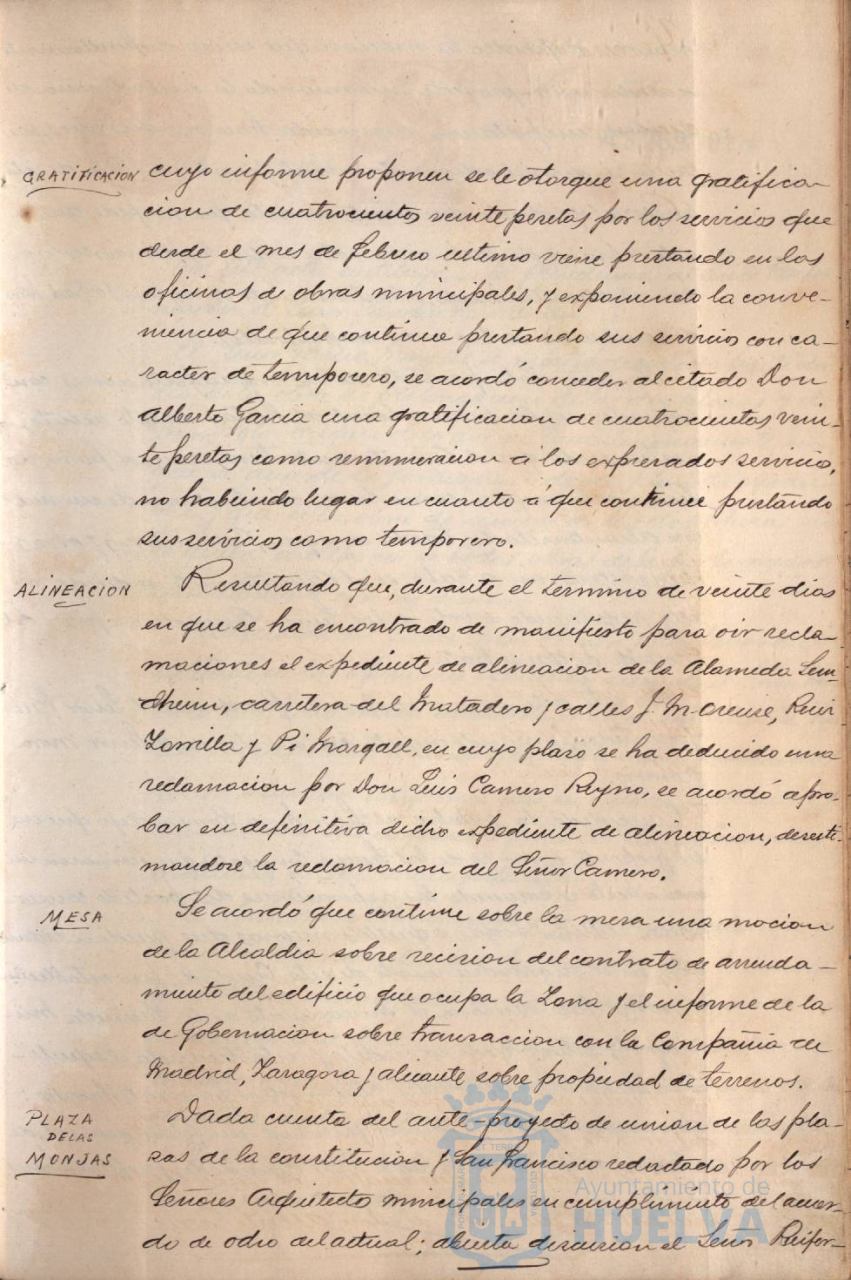 GRATIFICACION
cuyo informe proponen se le otorgue una gratifica-
cion de cuatrocientas veinte pesetas por los servicios que
desde el mes de febrero ultimo viene prestando en las
oficinas de obras municipales, y exponiendo la conve-
niencia de que continue prestando sus servicios con ca-
racter de temporero, se acordó conceder al citado Don
Alberto Garcia una gratificacion de cuatrocientas vein-
te pesetas como remuneracion á los expresados servicios,
no habiendo lugar en cuanto á que continue prestando
sus servicios como temporero.
ALINEACION
Resultando que, durante el termino de veinte dias
en que se ha encontrado de manifiesto para oir recla-
maciones el expediente de alineacion de la Alameda Sun-
dheim, carretera del Matadero y calles J. M. Orense, Ruiz
Zorrilla y Pi Margall, en cuyo plazo se ha deducido una
reclamacion por Don Luis Camero Reyno, se acordó apro-
bar en definitiva dicho expediente de alineacion, desesti-
mandose la reclamacion del Señor Camero.
MESA
Se acordó que continue sobre la mesa una mocion
de la Alcaldia sobre recision del contrato de arrenda-
miento del edificio que ocupa la Zona y el informe de la
de Gobernacion sobre transaccion con la Compañia de
Madrid, Zaragoza y Alicante sobre propiedad de terrenos.
PLAZA
DE LAS
MONJAS
Dada cuenta del ante-proyecto de union de las pla-
zas de la constitucion y San Francisco redactado por los
Señores Arquitectos municipales en cumplimiento del acuer-
do de ocho del actual; abierta discusion el Señor
Ayuntamiento de
HUELVA